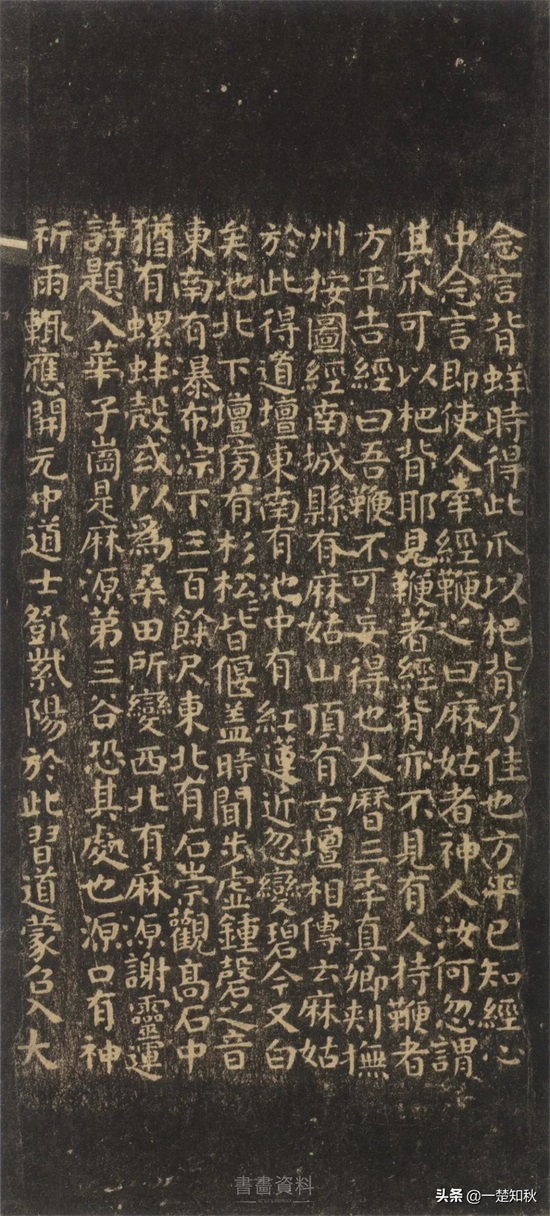 念言背蛘時得此爪以杷背乃佳也方平已知經心
中念言即使人牽經鞭之曰麻姑者神人汝何忽謂
其爪可以杷背耶見鞭者經背亦不見有人持鞭者
方平告經曰吾鞭不可妄得也大曆三年真卿刺撫
州按圖經南城縣有麻姑山頂有古壇相傳云麻姑
於此得道壇東南有池中有紅蓮近忽變碧今又白
矣池北下壇傍有杉松皆偃盖時聞步虛鍾磬之音
東南有瀑布淙下三百餘尺東北有石崇觀高石中
猶有螺蚌殼或以為桑田所變西北有麻源謝靈運
詩題入華子崗是麻源第三谷恐其處也源口有神
祈雨輒應開元中道士鄧紫陽於此習道蒙召入大
書畫資料
头条 @一楚知秋